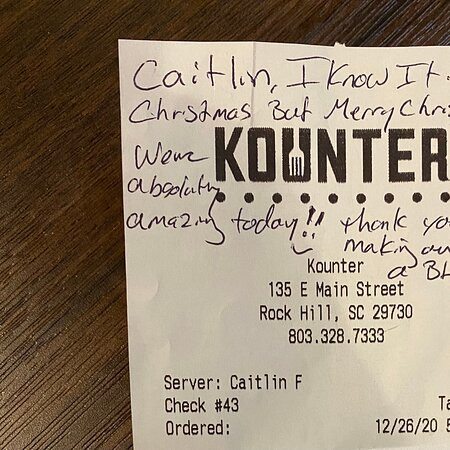 Caitlin, I Know It
Christmas But Merry Chris
KOUNTER
Were
absolutely
amazing today!! thank you
making our
a Bl
Kounter
135 E Main Street
Rock Hill, SC 29730
803.328.7333
Server: Caitlin F
Check #43 Ta
Ordered: 12/26/20 5